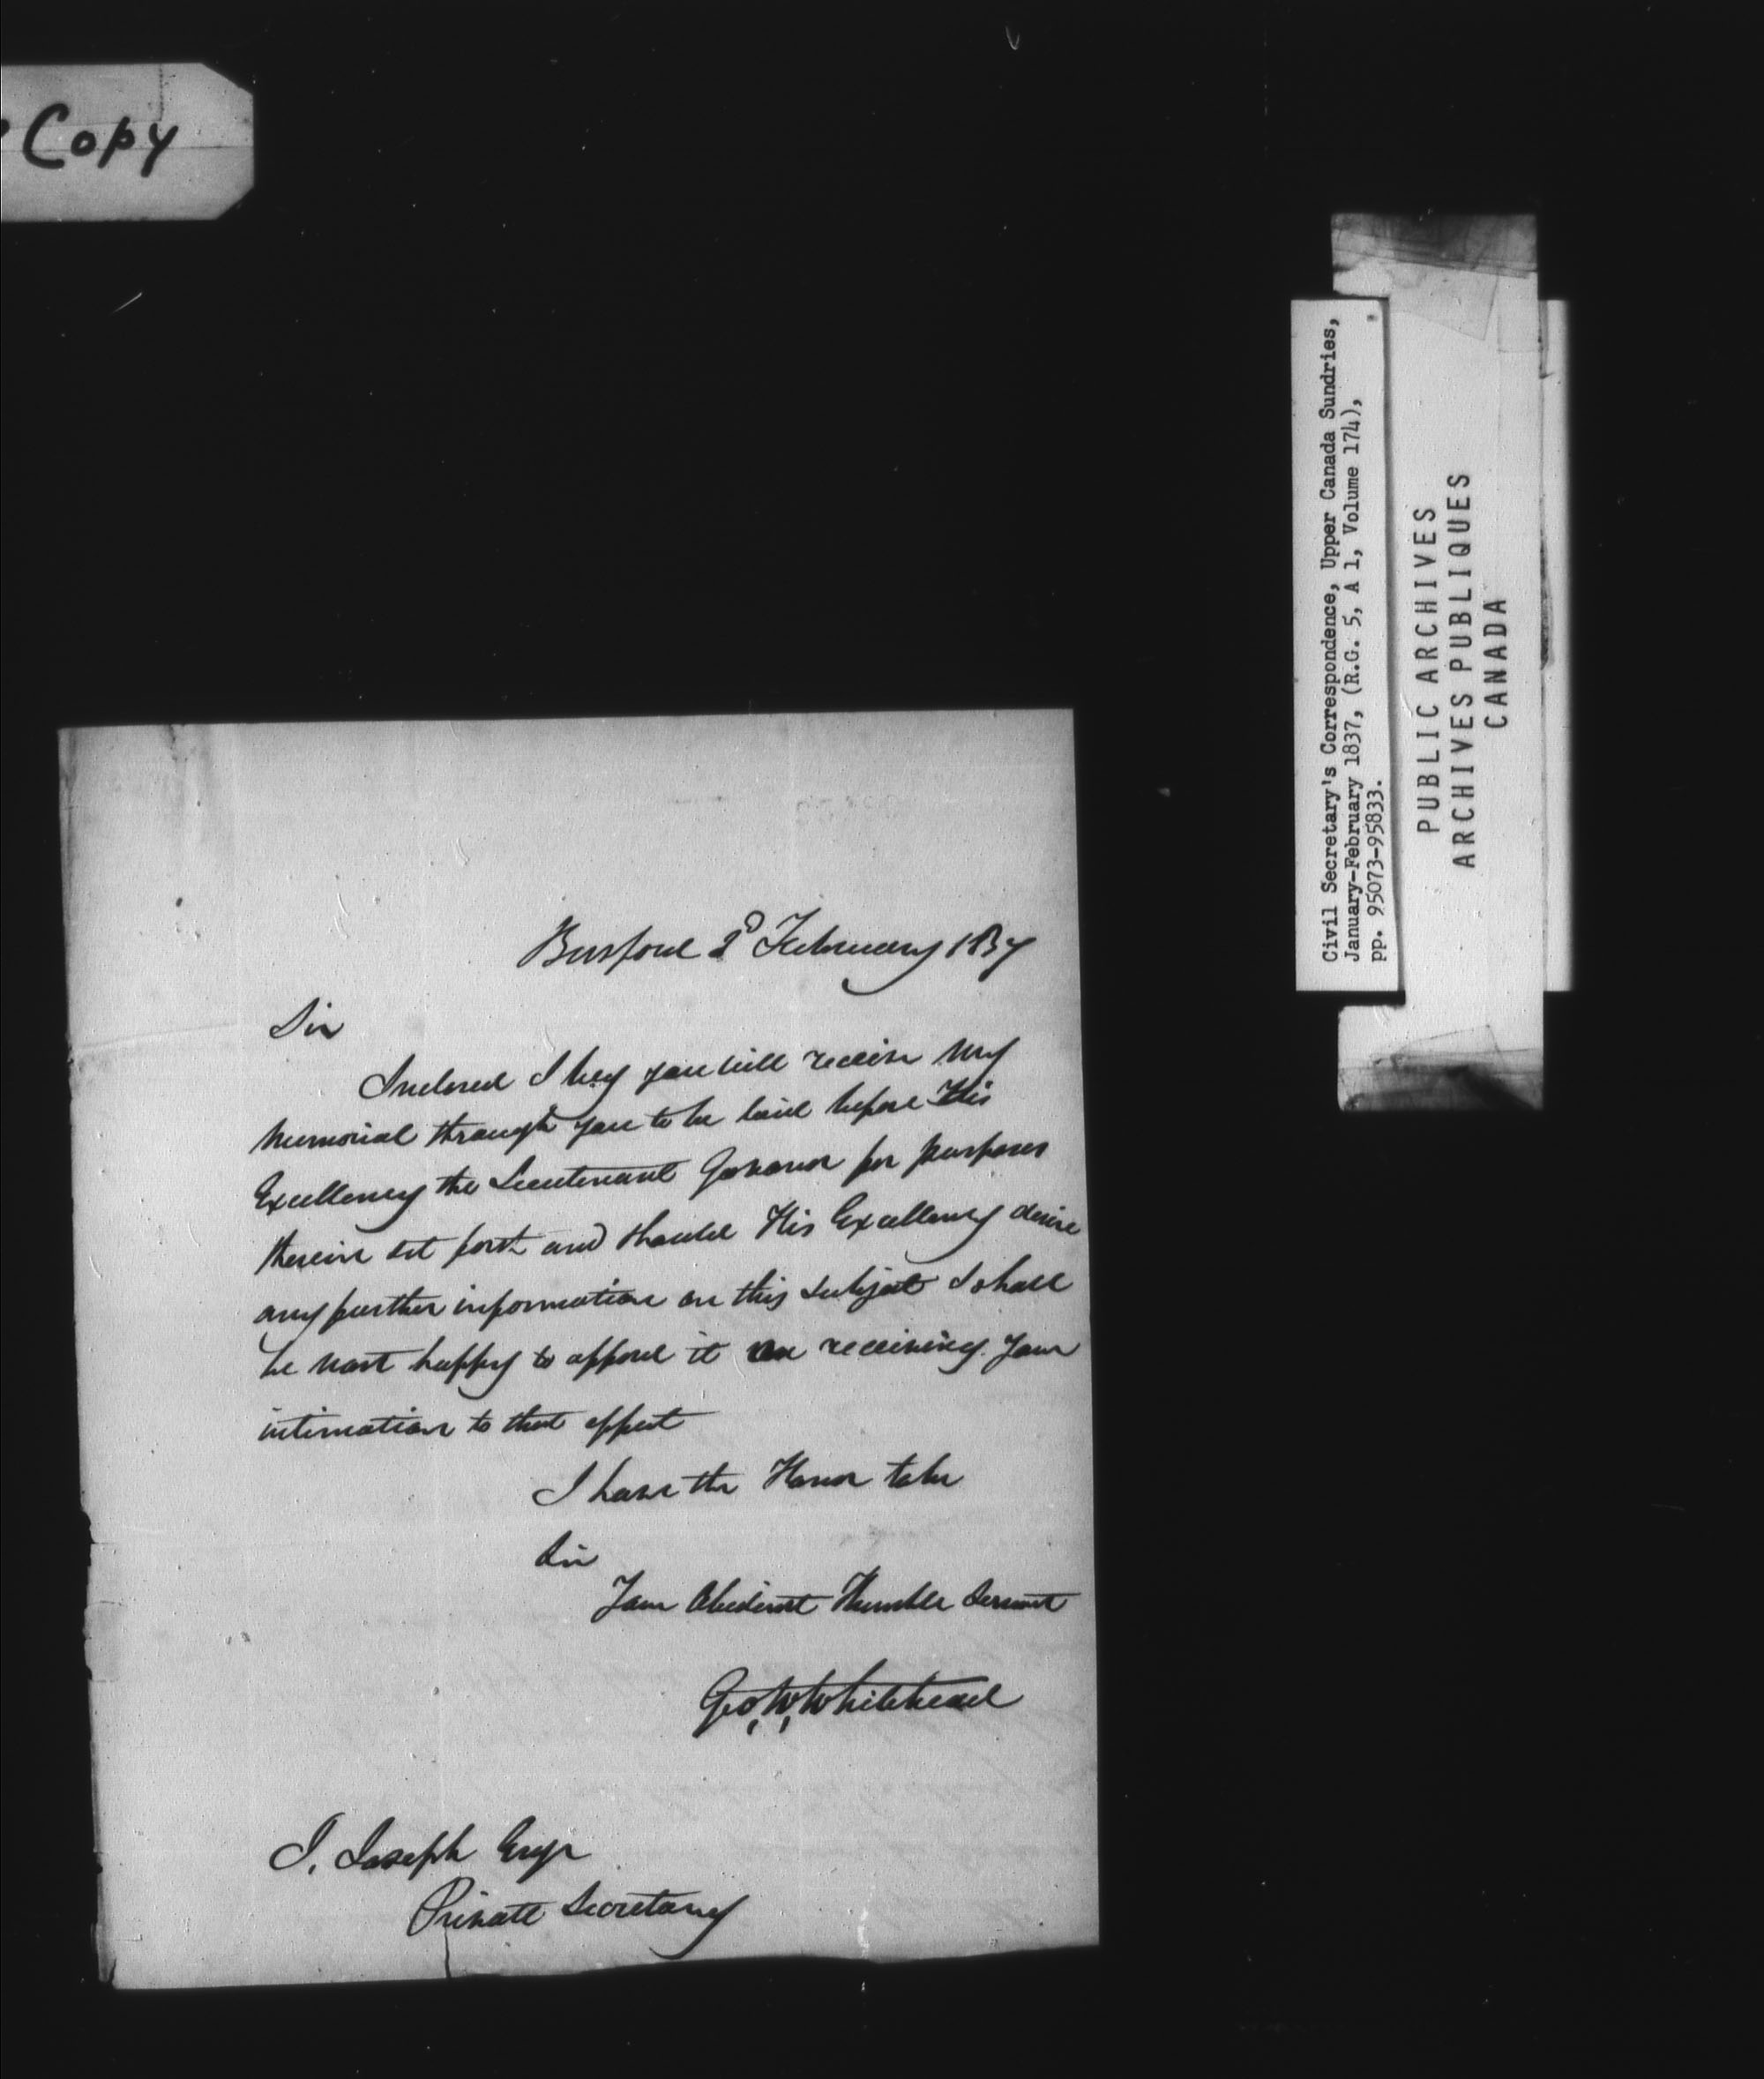 Copy
Civil Secretary's Correspondence, Upper Canada Sundries,
January-February 1837, (R.G. 5, A 1, Volume 174),
pp. 95073-95833.
PUBLIC ARCHIVES
ARCHIVES PUBLIQUES
CANADA
Burford 2d February 1837
Sir
Inclosed I beg you will receive my
Memorial through you to be laid before His
Excellency the Lieutenant Govenor for purposes
therein set forth and should His Excellency desire
any further information on this subject I shall
be most happy to afford it on receiving your
intimation to that effect
I have the Honor to be
Sir
Your Obedient Humble Servant
Geo, W, Whitehead
J. Joseph Esqr
Private Secretary